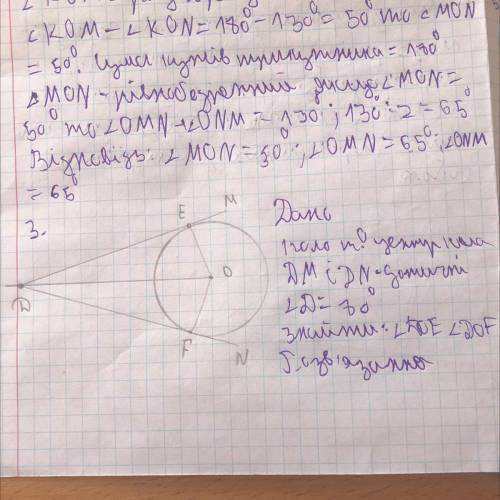 ∠KOM − ∠KON = 180° − 130° = 50° то ∠MON
= 50°. Сума кутів трикутника = 180°
△MON - рівнобедрений
∠MON =
50° то ∠OMN + ∠ONM = 130°; 130°:2 = 65°
Відповідь: ∠MON = 50°; ∠OMN = 65°; ∠ONM
= 65°
3.
E
M
D
O
F
N
Дано
коло т.O центр кола
DM і DN - дотичні
∠D =
Знайти: ∠DOF
Розв'язання